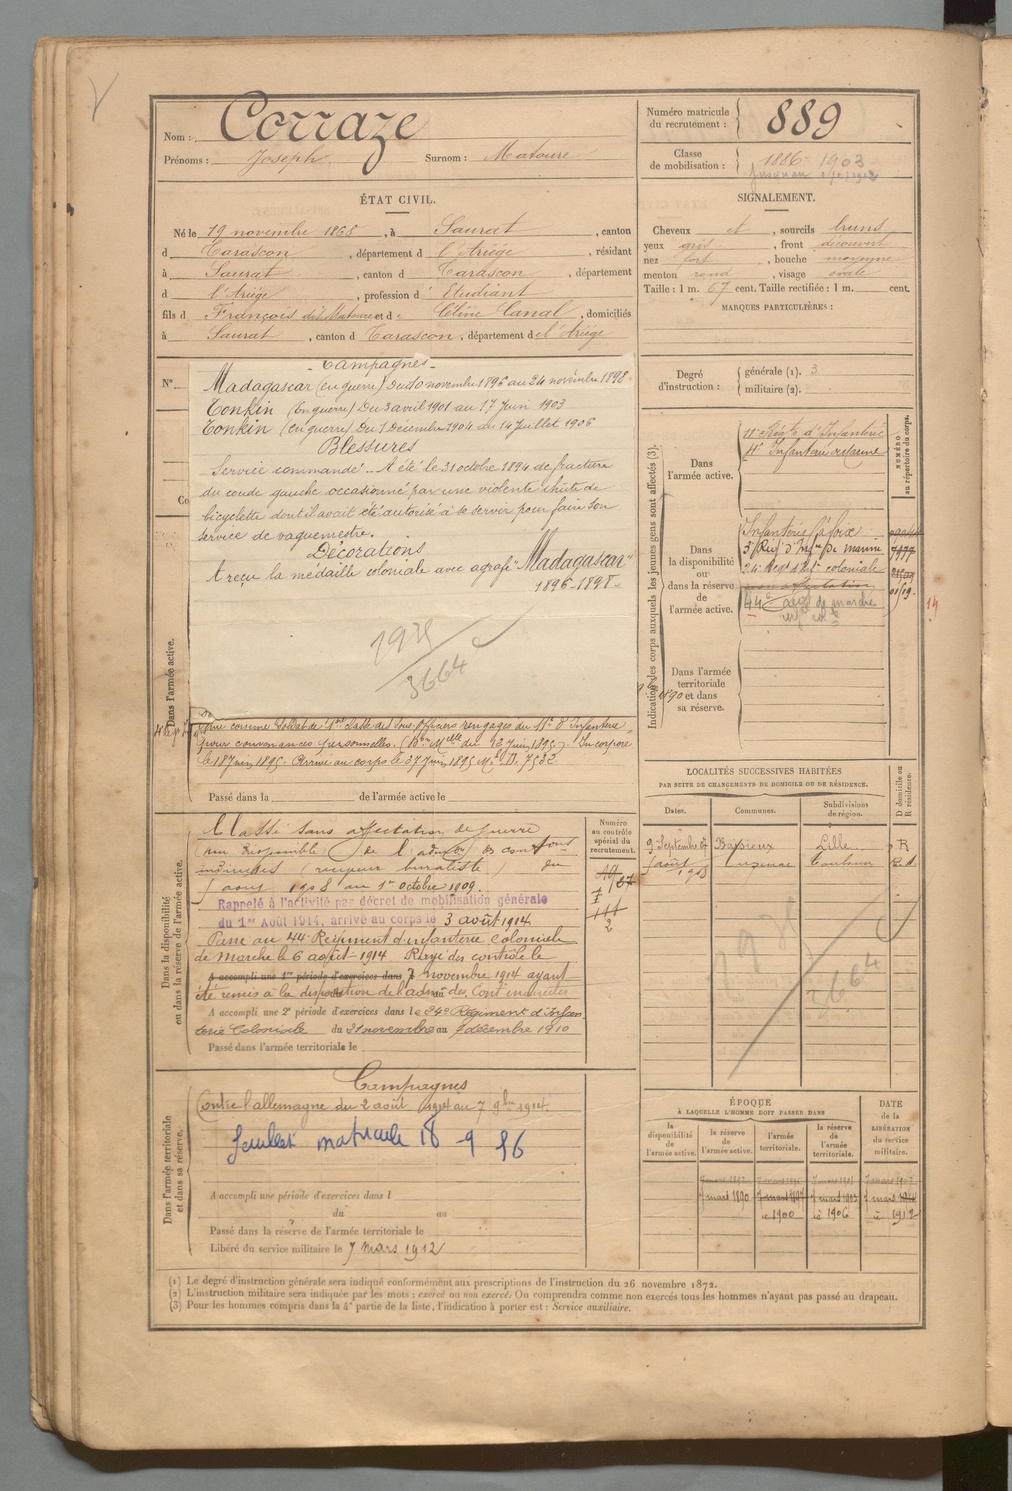 Nom : Corraze
Prénoms : Joseph Surnom : Matoure
Numéro matricule
du recrutement : 889
Classe
de mobilisation : 1886 1903
ÉTAT CIVIL.
Né le 19 novembre 1868, à Saurat, canton
d Tarascon, département d l'Ariège, résidant
à Saurat, canton d Tarascon, département
d l'Ariège, profession d' Etudiant
fils d François dit Matoure et d e Céline Canal, domiciliés
à Saurat, canton d Tarascon, département d e l'Ariège
SIGNALEMENT.
Cheveux et, sourcils bruns
yeux gris, front découvert
nez fort, bouche moyenne
menton rond, visage ovale
Taille : 1 m. 67 cent. Taille rectifiée : 1 m. cent.
MARQUES PARTICULIÈRES :
Degré
d'instruction :
générale (1). 3
militaire (2).
N°
Co
Campagnes
Madagascar (en guerre) Du 10 novembre 1896 au 24 novembre 1898
Tonkin (En guerre) Du 3 avril 1901 au 17 Juin 1903
Tonkin (en guerre) Du 1 Décembre 1904 au 14 Juillet 1906
Blessures
Service commandé. A été le 31 octobre 1894 de fracture
du coude gauche occasionné par une violente chute de
bicyclette dont il avait été autorisé à se servir pour faire son
service de vaguemestre.
Décorations
A reçu la médaille coloniale avec agrafe "Madagascar"
1896-1898
3664
Dans l'armée active.
comme Soldat de 1ère classe des Sous-officiers rengagés du 11e d'Infanterie
pour convenances personnelles. (Don Mlle du 12 Juin 1895). Incorporé
le 18 Juin 1895. Arrivé au corps le 27 Juin 1895 Mle D. 7532
Passé dans la de l'armée active le
Indication des corps auxquels les jeunes gens sont affectés (3).
NUMÉRO
au répertoire du corps.
Dans
l'armée active.
11e Régt d'Infanterie
4e Infanterie de marine
Dans
la disponibilité
ou
dans la réserve
de
l'armée active.
Infanterie Foix
3e Régt d'Infie de marine
24e Regt d'Inf coloniale
44e de marche
14
Dans l'armée
territoriale
et dans
sa réserve.
Dans la disponibilité
ou dans la réserve de l'armée active.
Classé sans affectation de guerre
non disponible de l'admon des contons
indirectes (receveur buraliste) du
5 aout 1908 au 1er octobre 1909.
Rappelé à l'activité par décret de mobilisation générale
du 1er Août 1914, arrivé au corps le 3 août 1914
Passé au 44e Régiment d'infanterie coloniale
de Marche le 6 août 1914 Rayé des contrôles le
A accompli une 1re période d'exercices dans 7 novembre 1914 ayant
été remis à la disposition de l'admon des Cont indirectes
A accompli une 2e période d'exercices dans l e 24e Régiment d'Infan
terie Coloniale du 21 novembre au 7 décembre 1910
Passé dans l'armée territoriale le
Numéro
au contrôle
spécial du
recrutement.
LOCALITÉS SUCCESSIVES HABITÉES
PAR SUITE DE CHANGEMENTS DE DOMICILE OU DE RÉSIDENCE.
D domicile ou
R résidence.
Dates. Communes. Subdivisions
de région.
9 Septembre 07 Baisieux Lille R
5 août 1908 Luzenac
3664
Dans l'armée territoriale
et dans sa réserve.
Campagnes
Contre l'allemagne du 2 août 1914 au 7 9bre 1914.
matricule 18-9 86
A accompli une période d'exercices dans l
du au
Passé dans la réserve de l'armée territoriale le
Libéré du service militaire le 7 mars 1912
ÉPOQUE
À LAQUELLE L'HOMME DOIT PASSER DANS
la
disponibilité
de
l'armée active.
la réserve
de
l'armée active.
l'armée
territoriale.
la réserve
de
l'armée
territoriale.
DATE
de la
LIBÉRATION
du service
militaire.
7 mars 1890 7 mars 1897 7 mars 1903 7 mars
1900 1906 1912
(1) Le degré d'instruction générale sera indiqué conformément aux prescriptions de l'instruction du 26 novembre 1872.
(2) L'instruction militaire sera indiquée par les mots : exercé ou non exercé. On comprendra comme non exercés tous les hommes n'ayant pas passé au drapeau.
(3) Pour les hommes compris dans la 4e partie de la liste, l'indication à porter est : Service auxiliaire.